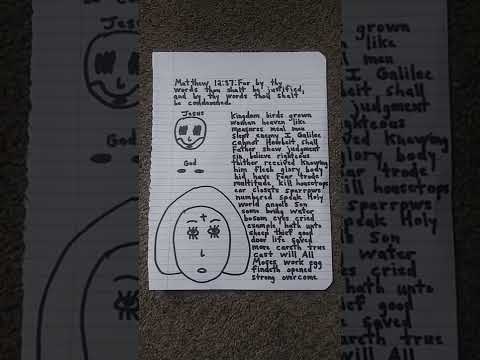 Matthew 12:37: For by thy
words thou shalt be justified,
and by thy words thou shalt
be condemned.
Jesus
God
Kingdom birds grown
woman heaven like
measures meal men
slept enemy I Galilee
cannot Howbeit shall
Father shew judgment
sin believe righteous
thither received Knowing
him flesh glory body
hid have Fear trode
multitude Kill housetops
ear closets sparrows
numbered speak Holy
world angels Son
some bring water
bosom eyes cried
example hath unto
sheep thief good
door life saved
more careth true
cast will All
Moses work egg
findeth opened
strong overcome